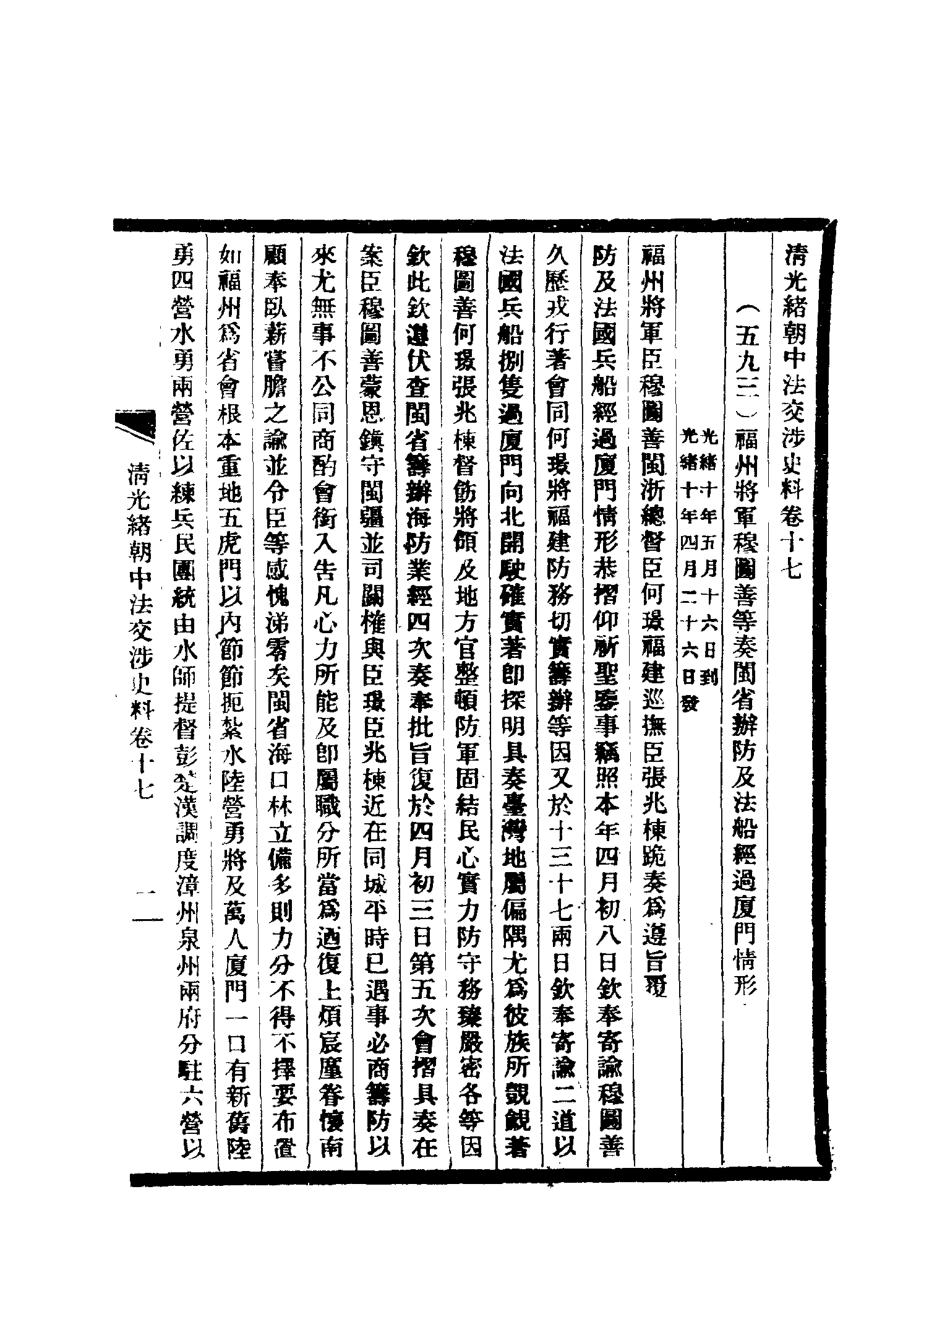 清光緒朝中法交涉史料卷十七
(五九三)福州將軍穆圖善等奏閩省辦防及法船經過廈門情形
光緒十年五月十六日到
光緒十年四月二十六日發
福州將軍臣穆圖善閩浙總督臣何璟福建巡撫臣張兆棟跪奏爲遵旨覆
防及法國兵船經過廈門情形恭摺仰祈聖鑒事竊照本年四月初八日欽奉寄諭穆圖善
久歷戎行著會同何璟將福建防務切實籌辦等因又於十三十七兩日欽奉寄諭二道以
法國兵船捌隻過廈門向北開駛確實著卽探明具奏臺灣地屬偏隅尤爲彼族所覬覦著
穆圖善何璟張兆棟督飭將領及地方官整頓防軍固結民心實力防守務臻嚴密各等因
欽此欽遵伏查閩省籌辦海防業經四次奏奉批旨復於四月初三日第五次會摺具奏在
案臣穆圖善蒙恩鎮守閩疆並司關榷與臣璟臣兆棟近在同城平時已遇事必商籌防以
來尤無事不公同商酌會銜入告凡心力所能及卽屬職分所當爲迺復上煩宸廑眷懷南
顧奉臥薪嘗膽之諭並令臣等感愧涕零矣閩省海口林立備多則力分不得不擇要布置
如福州爲省會根本重地五虎門以內節節扼紮水陸營勇將及萬人廈門一口有新舊陸
勇四營水勇兩營佐以練兵民團統由水師提督彭楚漢調度漳州泉州兩府分駐六營以
清光緒朝中法交涉史料卷十七 一